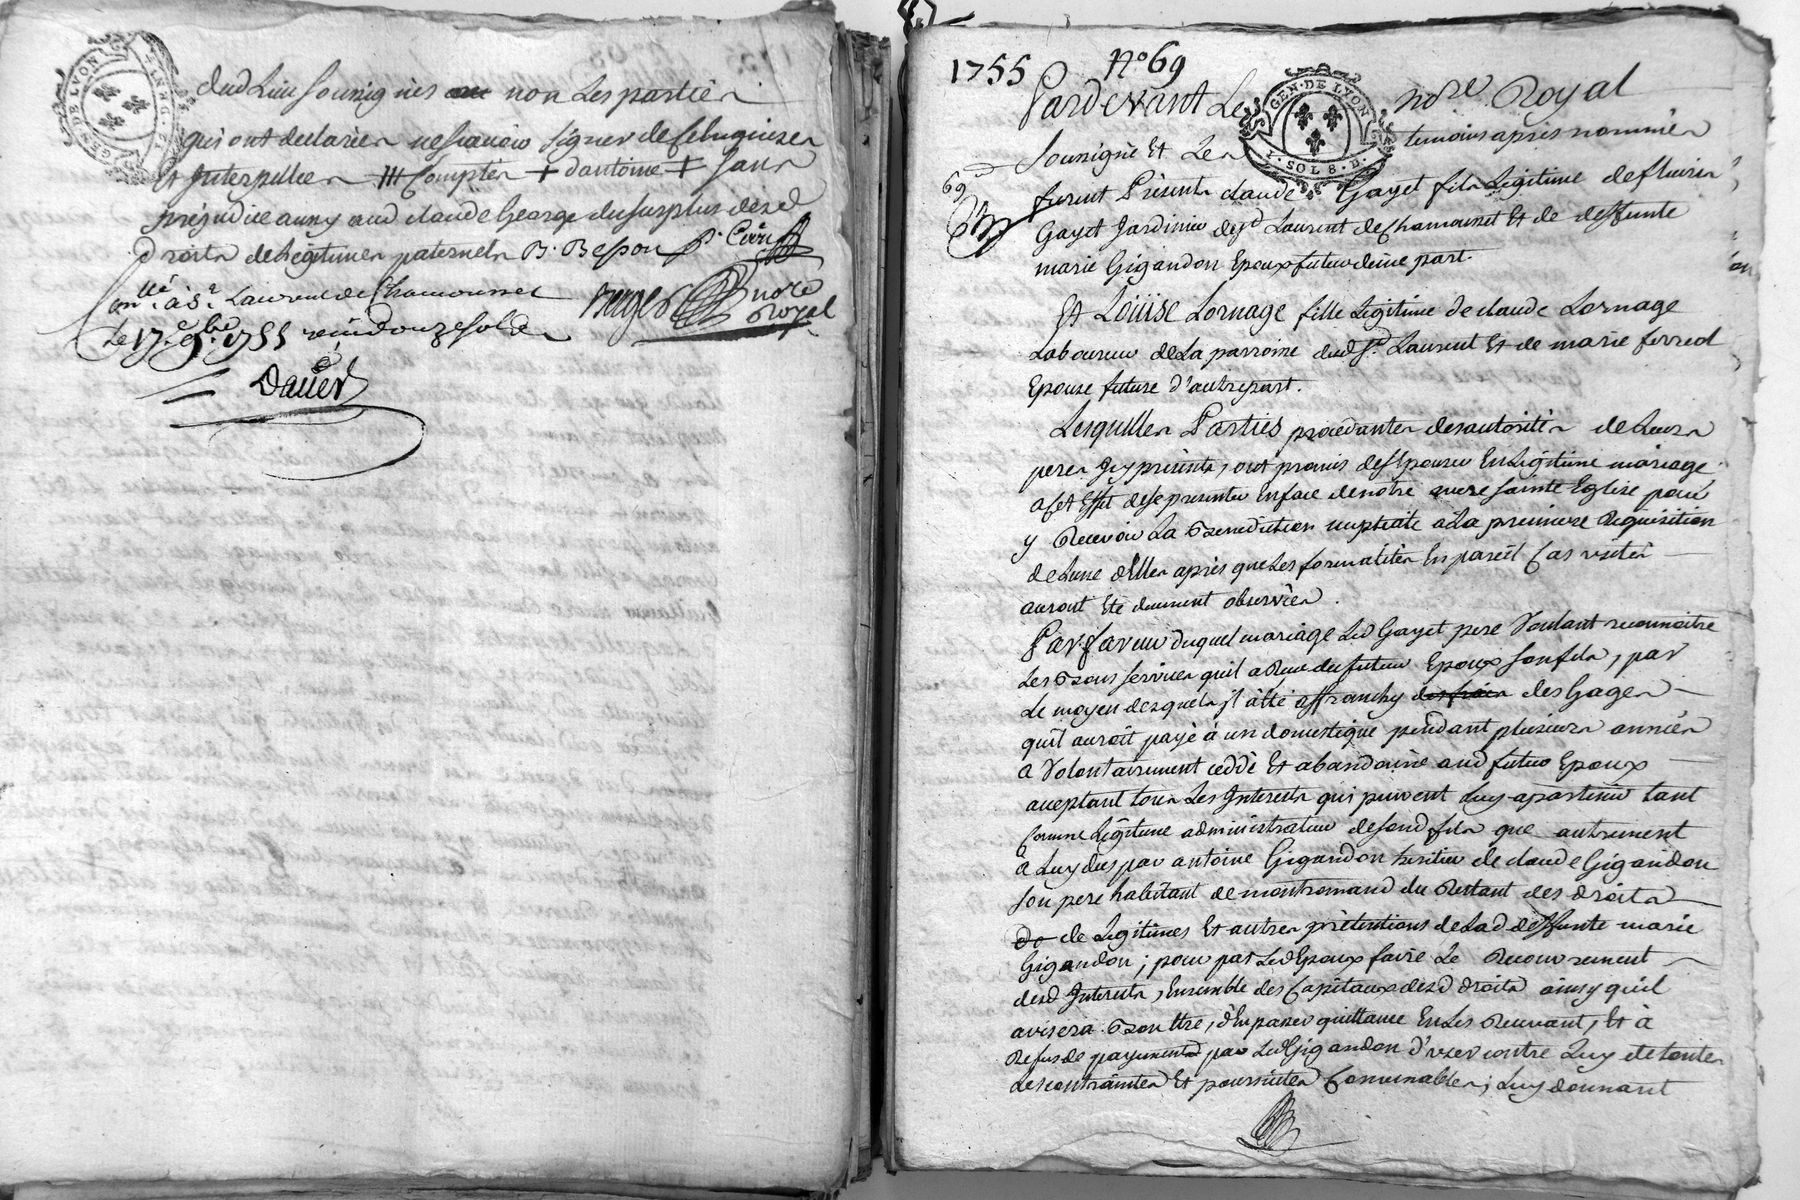 GEN. DE LYON
dud Lieu sousignés non Les parties
qui ont declarés ne sçavoir signer de ce enquises
et Interpellées Comptes + d'antoine + sans
prejudice auxy aud claude George du surplus desd
droits de Legitimes paternels B. Besson
Berger nore
Royal
Con.llé à St Laurent de Chamousset
Le 17e 9bre 1755 reçu douze sols
Dauer
1755 No 69
GEN. DE LYON
1. SOL 8. D.
Pardevant Le nore Royal
sousigné Et Les temoins après nommés
69
furent Présents claude Gayet fils Legitime de fleurie
Gayet Jardinier de st Laurent de Chamousset Et de deffunte
marie Gigandon Epoux futur d'une part.
Et Loüise Lornage fille Legitime de claude Lornage
Laboureur de La parroisse dud st Laurent Et de marie ferred
Epouse future d'autre part.
Lesquelles Parties procedantes des autorités de Leurs
peres Icy présents, ont promis de s'Epouser En Légitime mariage
a cet Effet de se presenter En face de notre mere sainte Eglise pour
y Recevoir La Benediction nuptiale à La premiere Requisition
de L'une d'Elles après que Les formalités En pareil Cas usitées
auront Eté duement observées.
Par faveur duquel mariage Led Gayet pere Voulant reconnoitre
Les Bons services qu'il a Reçu du futur Epoux son fils, par
Le moyen desquels Il a été affranchy des frais des Gages
qu'il auroit payé à un domestique pendant plusieurs années
a Volontairement ceddé Et abandonné aud futur Epoux
acceptant tous Les Interests qui peuvent Luy apartenir tant
Comme Légitime administrateur de sond fils que autrement
à Luy dus par antoine Gigandon heritier de claude Gigandon
son pere habitant de montromand du Restant des droits
do de Legitimes Et autres prétentions de Lad deffunte marie
Gigandon; pour par Led Epoux faire Le Recouvrement
desd Interests, Ensemble des Capitaux desd droits ainsy qu'il
avisera Bon Etre, d'En passer quittance En Les Recevant, Et à
Refus de payement par Led Gigandon d'user contre Luy de toutes
Les contraintes Et poursuites Convenables; Luy donnant